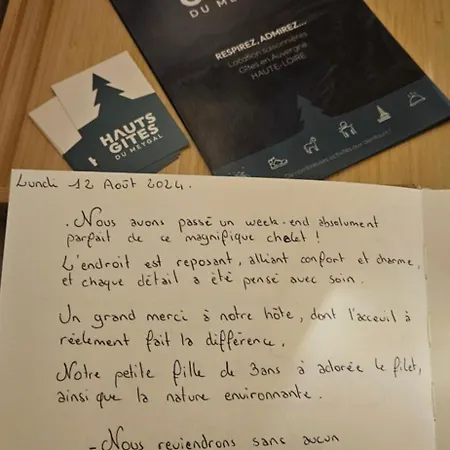 DU MEYGAL
RESPIREZ, ADMIREZ...
Location saisonnières
Gîtes en Auvergne
HAUTE-LOIRE
HAUTS
GÎTES
DU MEYGAL
Lundi 12 Août 2024.
. Nous avons passé un week-end absolument
parfait de ce magnifique chalet !
L'endroit est reposant, alliant confort et charme,
et chaque détail a été pensé avec soin.
Un grand merci à notre hôte, dont l'acceuil à
réelement fait la différence.
Notre petite fille de 3ans à adorée le filet,
ainsi que la nature environnante.
- Nous reviendrons sans aucun